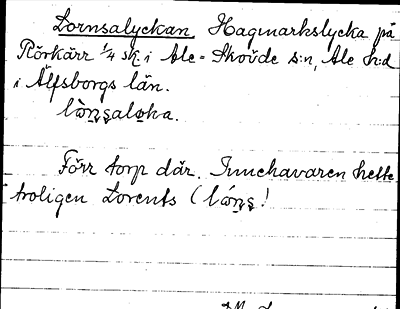 Lornsalyckan, Hagmarkslycka på
Rörkärr 1/4 sk. i Ale-Skövde s:n, Ale h:d
i Älfsborgs län.
lòn̥s̥aløka.
Förr torp där. Innehavaren hette
troligen Lorents (lóns!